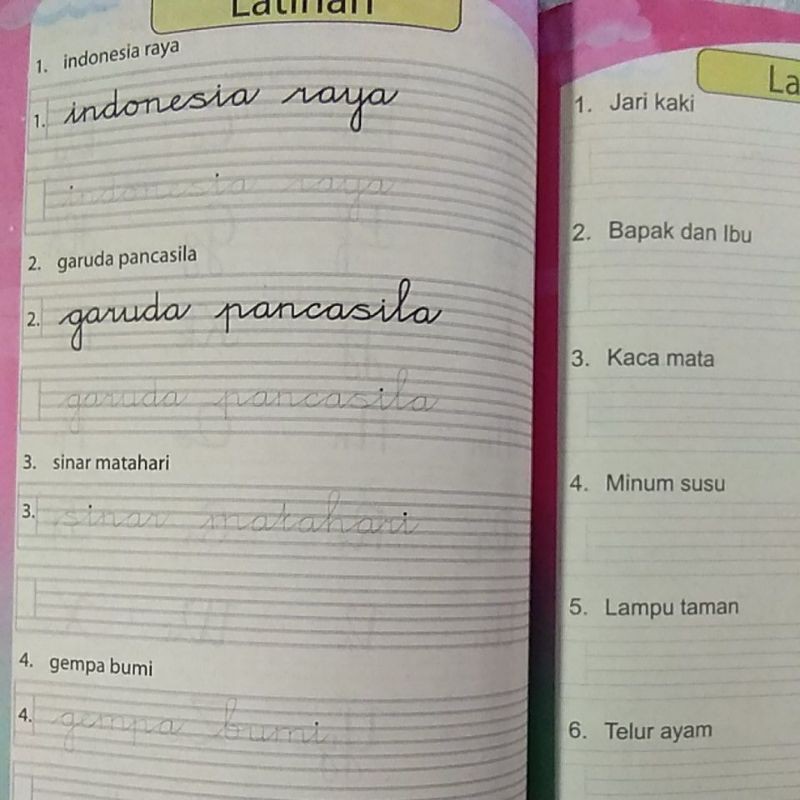 Latihan
1. indonesia raya
1. indonesia raya
indonesia raya
2. garuda pancasila
2. garuda pancasila
garuda pancasila
3. sinar matahari
3. sinar matahari
4. gempa bumi
4. gempa bumi
La
1. Jari kaki
2. Bapak dan Ibu
3. Kaca mata
4. Minum susu
5. Lampu taman
6. Telur ayam